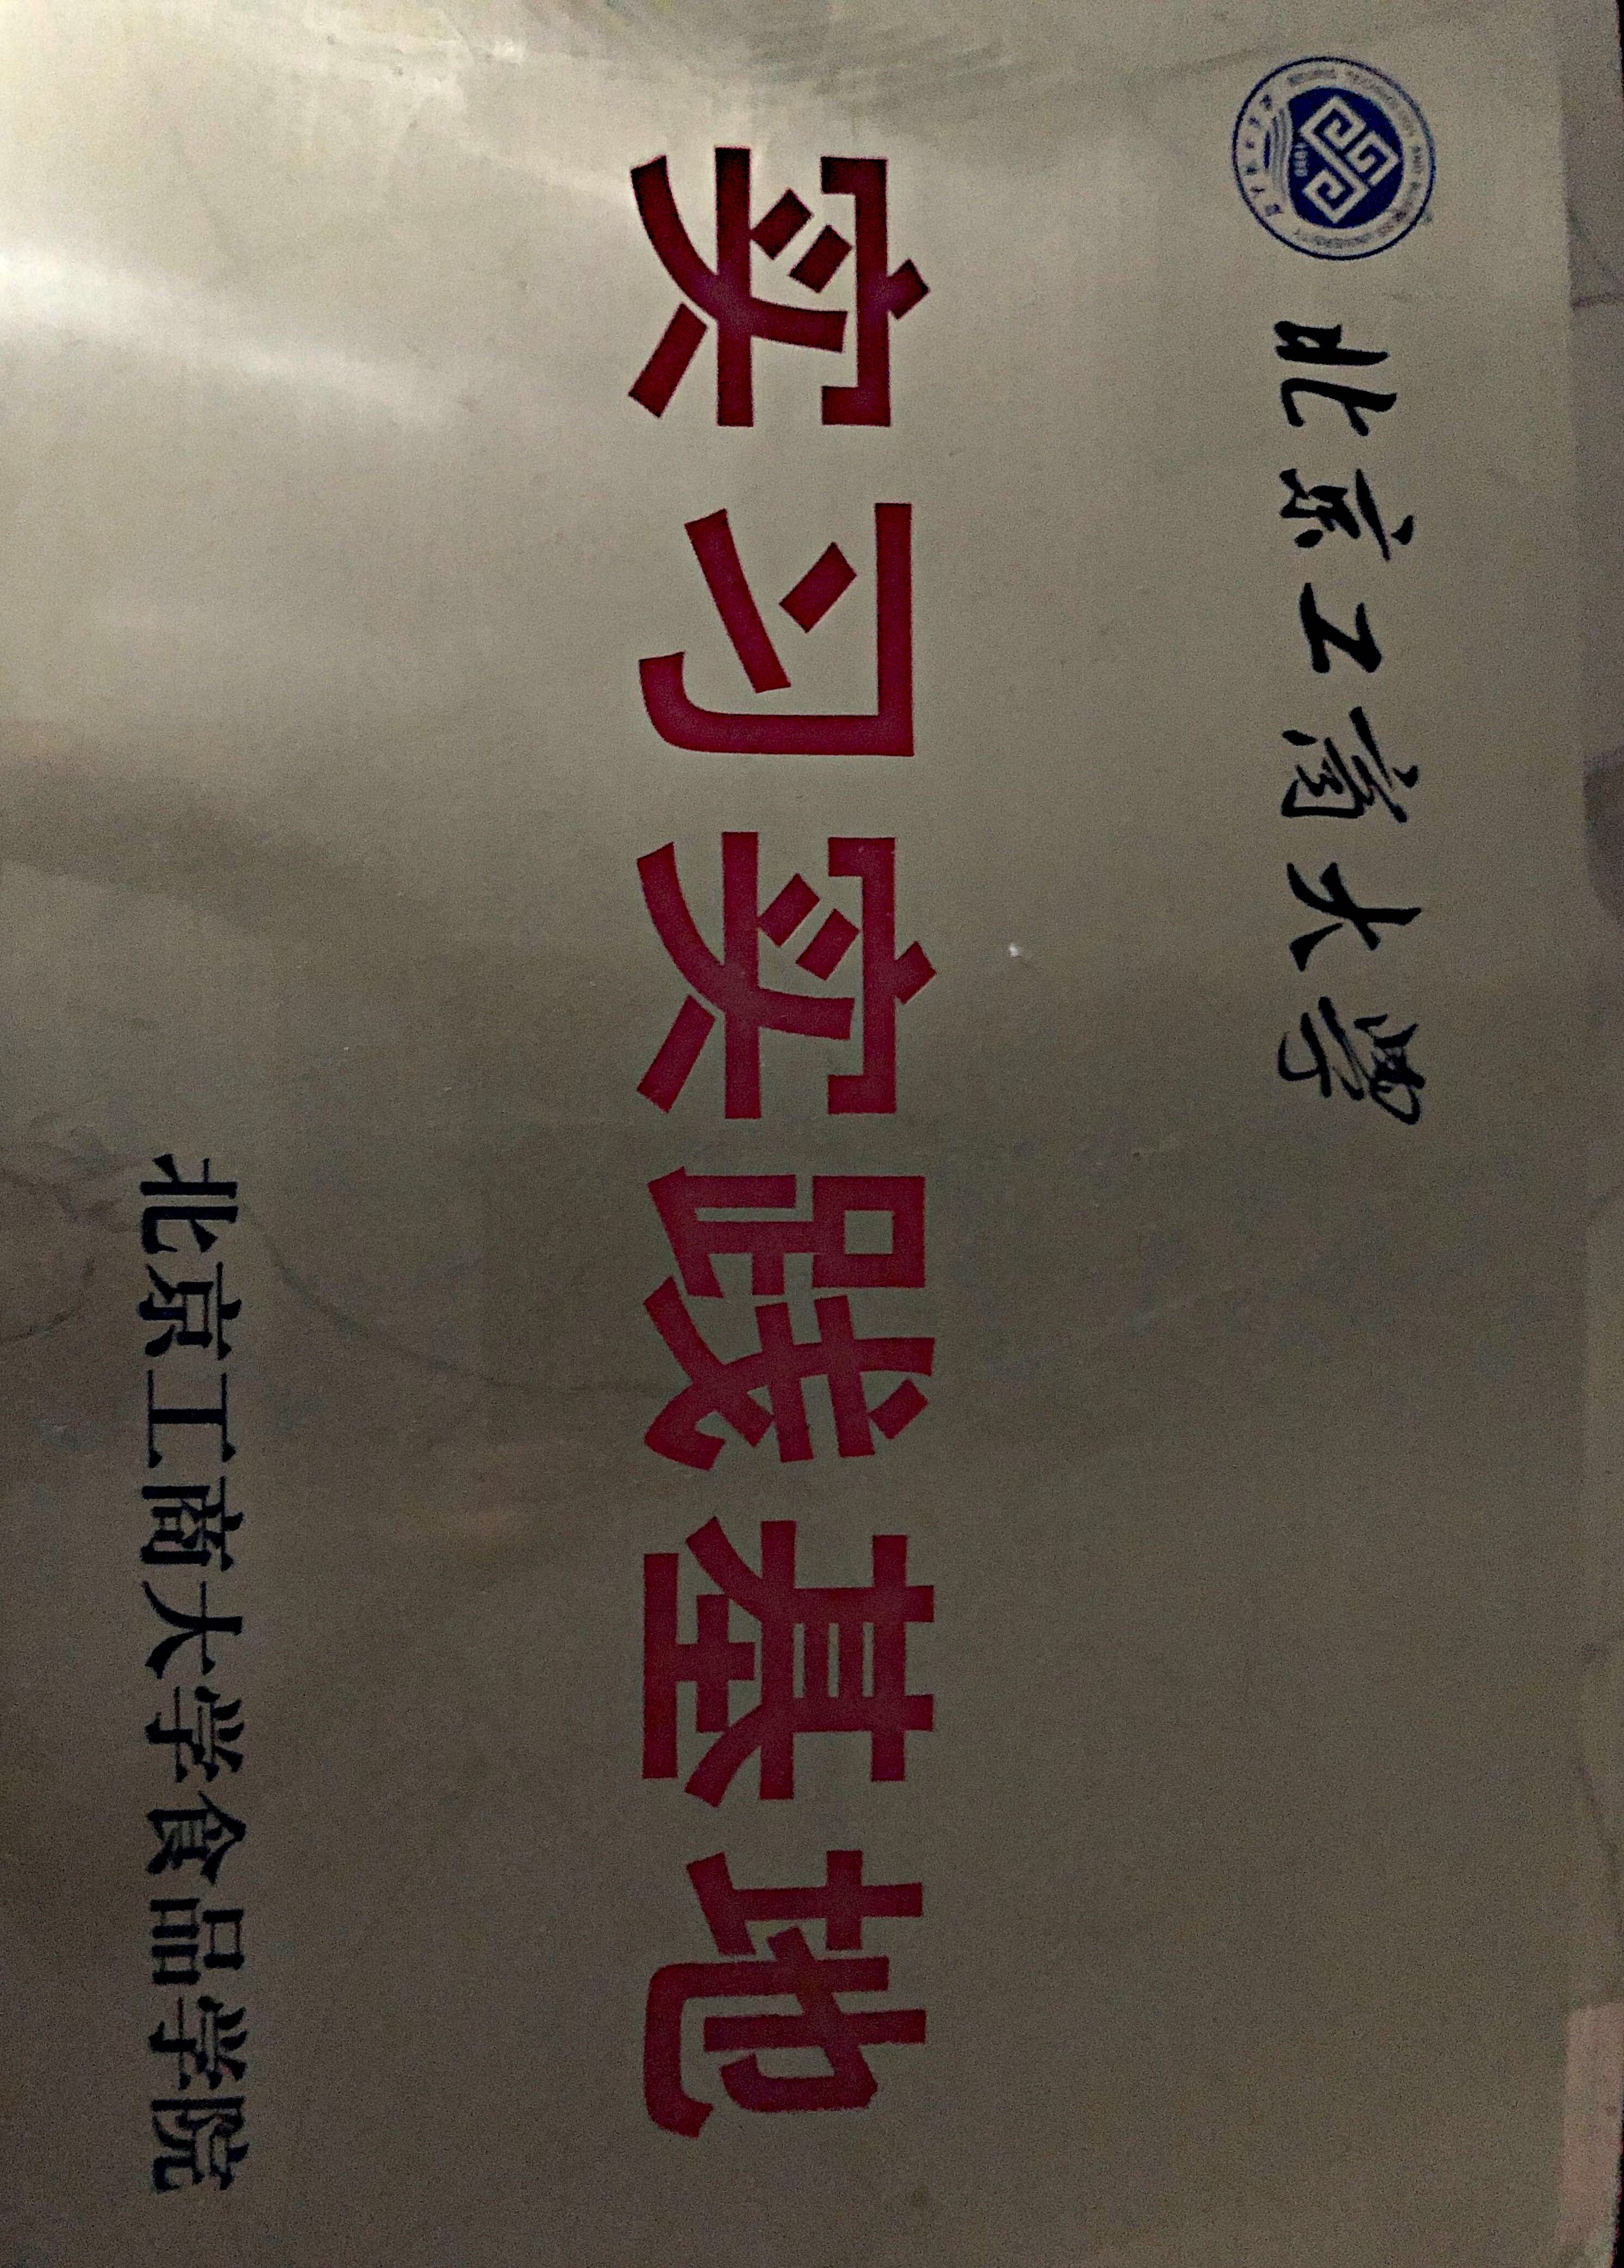 北京工商大學
实习实践基地
北京工商大学食品学院